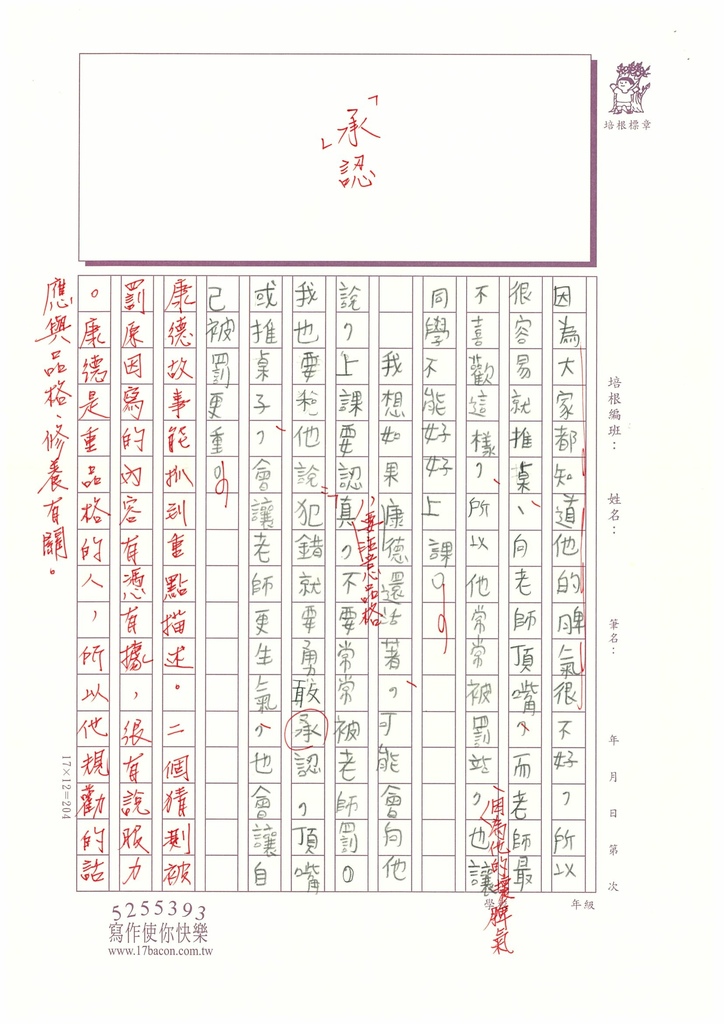 「承認」
培根標章
培根編班： 姓名： 筆名： 年 月 日 第 次
年級
因為大家都知道他的脾氣很不好，所以
很容易就推桌、向老師頂嘴，而老師最
不喜歡這樣，所以他常常被罰站，也讓
、因為他的壞脾氣
同學不能好好上課。
我想如果康德還活著，可能會向他
說，上課要認真，不要常常被老師罰。
、要注意品格
我也要和他說犯錯就要勇敢承認，頂嘴
或推桌子，會讓老師更生氣，也會讓自
己被罰更重。
康德故事能抓到重點描述。二個猜剩被
罰原因寫的內容有憑有據，很有說服力
。康德是重品格的人，所以他規勸的話
應與品格、修養有關。
17×12=204
5255393
寫作使你快樂
www.17bacon.com.tw